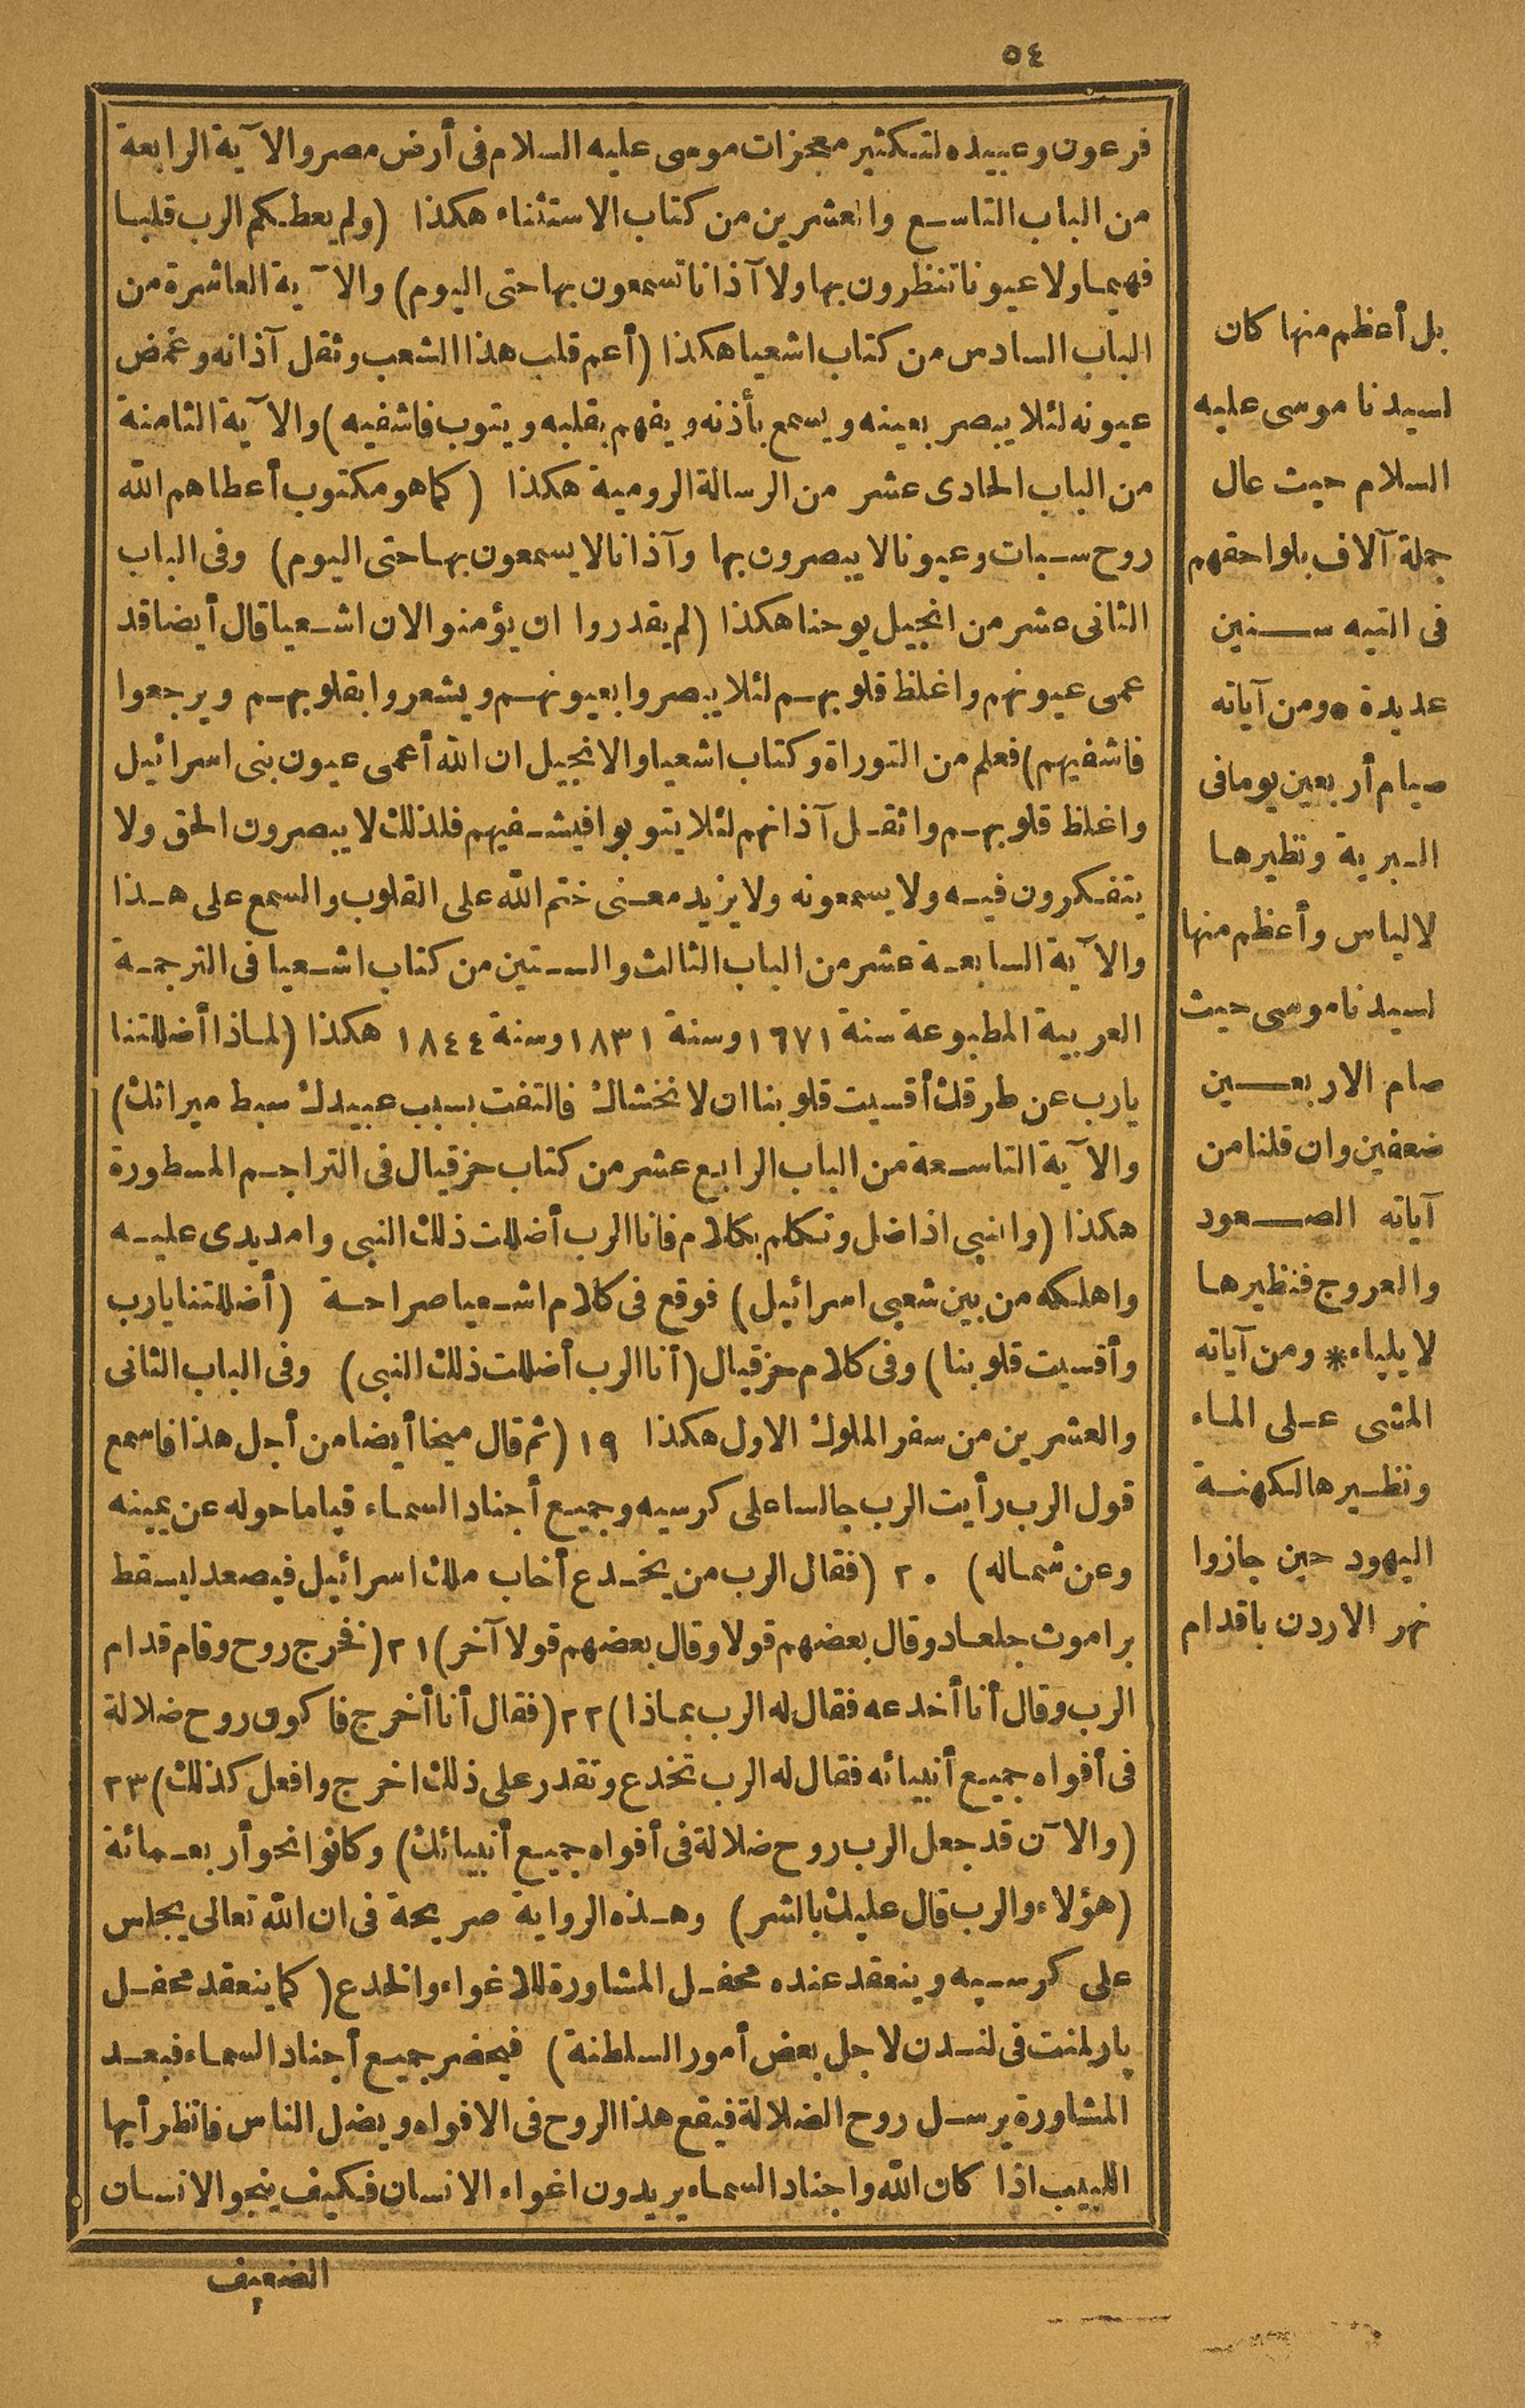 ٥٤
فرعون وعبيده لتكثير معجزات موسى عليه السلام فى أرض مصر والآية الرابعة
من الباب التاسع والعشرين من كتاب الاستثناء هكذا (ولم يعطكم الرب قلبا
فهيما ولا عيونا تنظرون بها ولا آذانا تسمعون بها حتى اليوم) والآية العاشرة من
الباب السادس من كتاب اشعيا هكذا (أعم قلب هذا الشعب وثقل آذانه وغمض
عيونه لئلا يبصر بعينه ويسمع بأذنه ويفهم بقلبه ويتوب فاشفيه) والآية الثامنة
من الباب الحادى عشر من الرسالة الرومية هكذا (كما هو مكتوب أعطاهم الله
روح سبات وعيونا لا يبصرون بها وآذانا لا يسمعون بها حتى اليوم) وفى الباب
الثانى عشر من انجيل يوحنا هكذا (لم يقدروا ان يؤمنوا لان اشعيا قال أيضا قد
عمى عيونهم واغلظ قلوبهم لئلا يبصروا بعيونهم ويشعروا بقلوبهم ويرجعوا
فاشفيهم) فعلم من التوراة وكتاب اشعيا والانجيل ان الله أعمى عيون بنى اسرائيل
واغلظ قلوبهم واثقل آذانهم لئلا يتوبوا فيشفيهم فلذلك لا يبصرون الحق ولا
يتفكرون فيه ولا يسمعونه ولا يزيد معنى ختم الله على القلوب والسمع على هذا
والآية السابعة عشر من الباب الثالث والستين من كتاب اشعيا فى الترجمة
العربية المطبوعة سنة ١٦٧١ وسنة ١٨٣١ وسنة ١٨٤٤ هكذا (لماذا أضللتنا
يارب عن طرقك أقسيت قلوبنا ان لا نخشاك فالتفت بسبب عبيدك سبط ميراثك)
والآية التاسعة من الباب الرابع عشر من كتاب حزقيال فى التراجم المسطورة
هكذا (والنبى اذا ضل وتكلم بكلام فانا الرب أضللت ذلك النبى وامد يدى عليه
واهلكه من بين شعبى اسرائيل) فوقع فى كلام اشعيا صراحة (أضللتنا يارب
وأقسيت قلوبنا) وفى كلام حزقيال (أنا الرب أضللت ذلك النبى) وفى الباب الثانى
والعشرين من سفر الملوك الاول هكذا ١٩ (ثم قال ميخا أيضا من أجل هذا فاسمع
قول الرب رأيت الرب جالسا على كرسيه وجميع أجناد السماء قياما حوله عن يمينه
وعن شماله) ٢٠ (فقال الرب من يخدع أخاب ملك اسرائيل فيصعد ليسقط
براموث جلعاد وقال بعضهم قولا وقال بعضهم قولا آخر) ٢١ (فخرج روح وقام قدام
الرب وقال أنا أخدعه فقال له الرب بماذا) ٢٢ (فقال أنا أخرج فاكون روح ضلالة
فى أفواه جميع أنبيائه فقال له الرب تخدع وتقدر على ذلك اخرج وافعل كذلك) ٢٣
(والآن قد جعل الرب روح ضلالة فى أفواه جميع أنبيائك) وكانوا نحو أربعمائة
(هؤلاء والرب قال عليك بالشر) وهذه الرواية صريحة فى ان الله تعالى يجلس
على كرسيه وينعقد عنده محفل المشاورة للاغواء والخدع (كما ينعقد محفل
پارلمنت فى لندن لاجل بعض أمور السلطنة) فيحضر جميع أجناد السماء فبعد
المشاورة يرسل روح الضلالة فيقع هذا الروح فى الافواه ويضل الناس فانظر أيها
اللبيب اذا كان الله واجناد السماء يريدون اغواء الانسان فكيف ينجو الانسان
الضعيف
بل أعظم منها كان
لسيدنا موسى عليه
السلام حيث عال
جملة آلاف بلواحقهم
فى التيه سنين
عديدة * ومن آياته
صيام أربعين يوما فى
البرية ونظيرها
لالياس وأعظم منها
لسيدنا موسى حيث
صام الاربعين
ضعفين وان قلنا من
آياته الصعود
والعروج فنظيرها
لايلياء * ومن آياته
المشى على الماء
ونظيرها لكهنة
اليهود حين جازوا
نهر الاردن باقدام